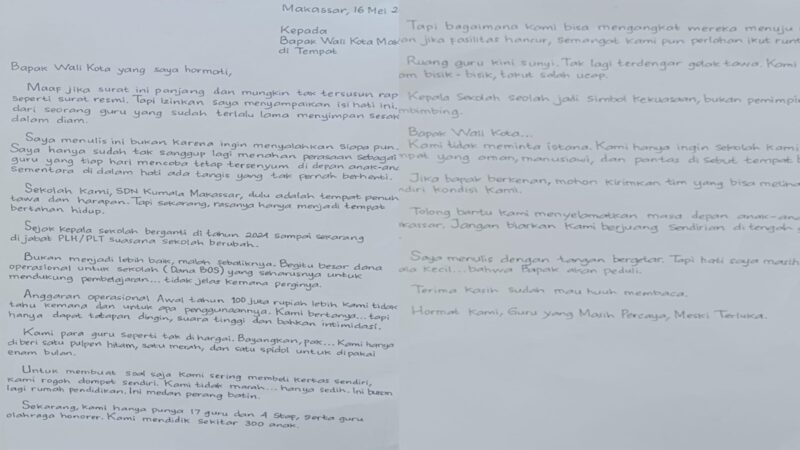 Makassar, 16 Mei 2
Kepada
Bapak Wali Kota Ma
di Tempat
Bapak Wali Kota yang saya hormati,
Maaf jika surat ini panjang dan mungkin tak tersusun rap
seperti surat resmi. Tapi izinkan saya menyampaikan isi hati ini,
dari seorang guru yang sudah terlalu lama menyimpan sesak
dalam diam.
Saya menulis ini bukan karena ingin menyalahkan siapa pun.
Saya hanya sudah tak sanggup lagi menahan perasaan sebagai
guru yang tiap hari mencoba tetap tersenyum di depan anak-ana
Sementara di dalam hati ada tangis yang tak pernah berhenti.
Sekolah kami, SDN Kumala Makassar, dulu adalah tempat penuh
tawa dan harapan. Tapi sekarang, rasanya hanya menjadi tempat
bertahan hidup.
Sejak kepala sekolah berganti di tahun 2024 sampai sekarang
di jabat PLH/PLT suasana sekolah berubah.
Bukan menjadi lebih baik, malah sebaliknya. Begitu besar dana
operasional untuk sekolah (Dana BOS) yang seharusnya untuk
mendukung pembelajaran... tidak jelas kemana perginya.
Anggaran operasional Awal tahun 100 juta rupiah lebih kami tidak
tahu kemana dan untuk apa penggunaannya. Kami bertanya... tapi
hanya dapat tatapan dingin, suara tinggi dan bahkan intimidasi.
Kami para guru seperti tak di hargai. Bayangkan, pak... Kami hanya
diberi satu pulpen hitam, satu merah, dan satu spidol untuk dipakai
enam bulan.
Untuk membuat soal saja kami sering membeli kertas sendiri,
kami rogoh dompet sendiri. Kami tidak marah... hanya sedih. Ini bukan
lagi rumah pendidikan. Ini medan perang batin.
Sekarang, kami hanya punya 17 guru dan 4 staf, serta guru
olahraga honorer. Kami mendidik sekitar 300 anak.
Tapi bagaimana kami bisa mengangkat mereka menuju
an jika fasilitas hancur, semangat kami pun perlahan ikut runt
Ruang guru kini sunyi. Tak lagi terdengar gelak tawa. Kami
am bisik-bisik, takut salah ucap.
Kepala Sekolah seolah jadi simbol kekuasaan, bukan pemimpin
mbimbing.
Bapak Wali Kota...
Kami tidak meminta istana. Kami hanya ingin sekolah kami
mpat yang aman, manusiawi, dan pantas di sebut tempat b
Jika bapak berkenan, mohon kirimkan tim yang bisa meliha
ndiri kondisi kami.
Tolong bantu kami menyelamatkan masa depan anak-ana
kassar. Jangan biarkan kami berjuang sendirian di tengah
Saya menulis dengan tangan bergetar. Tapi hati saya masih
ala kecil... bahwa Bapak akan peduli.
Terima kasih sudah mau huuh membaca.
Hormat kami, Guru yang Masih Percaya, Meski Terluka.